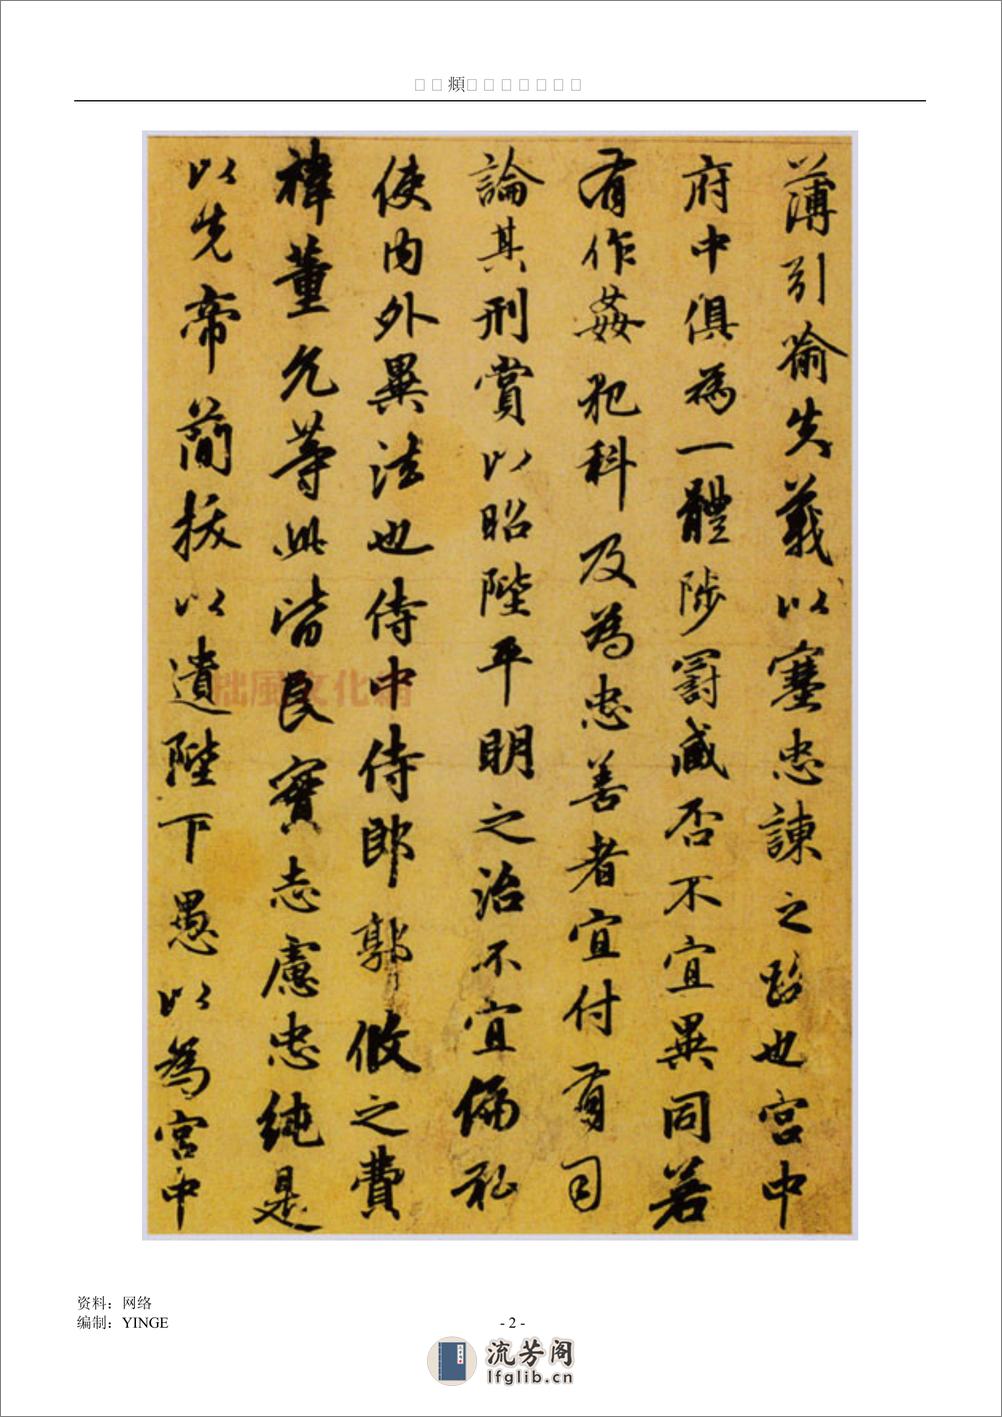 □□頫□□□□□□□
薄引喻失義以塞忠諫之路也宮中
府中俱為一體陟罰臧否不宜異同若
有作姦犯科及為忠善者宜付有司
論其刑賞以昭陛平明之治不宜偏私
使內外異法也侍中侍郎郭攸之費
禕董允等此皆良實志慮忠純是
以先帝簡拔以遺陛下愚以為宮中
拙風文化網
资料：网络
编制：YINGE
- 2 -
流芳阁
lfglib.cn